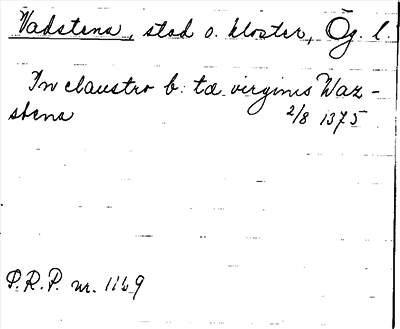 Vadstena, stad o. kloster, Ög. l.
In claustro b. tæ virginis Waz-
stena 2/8 1375
P.R.P. nr. 1169